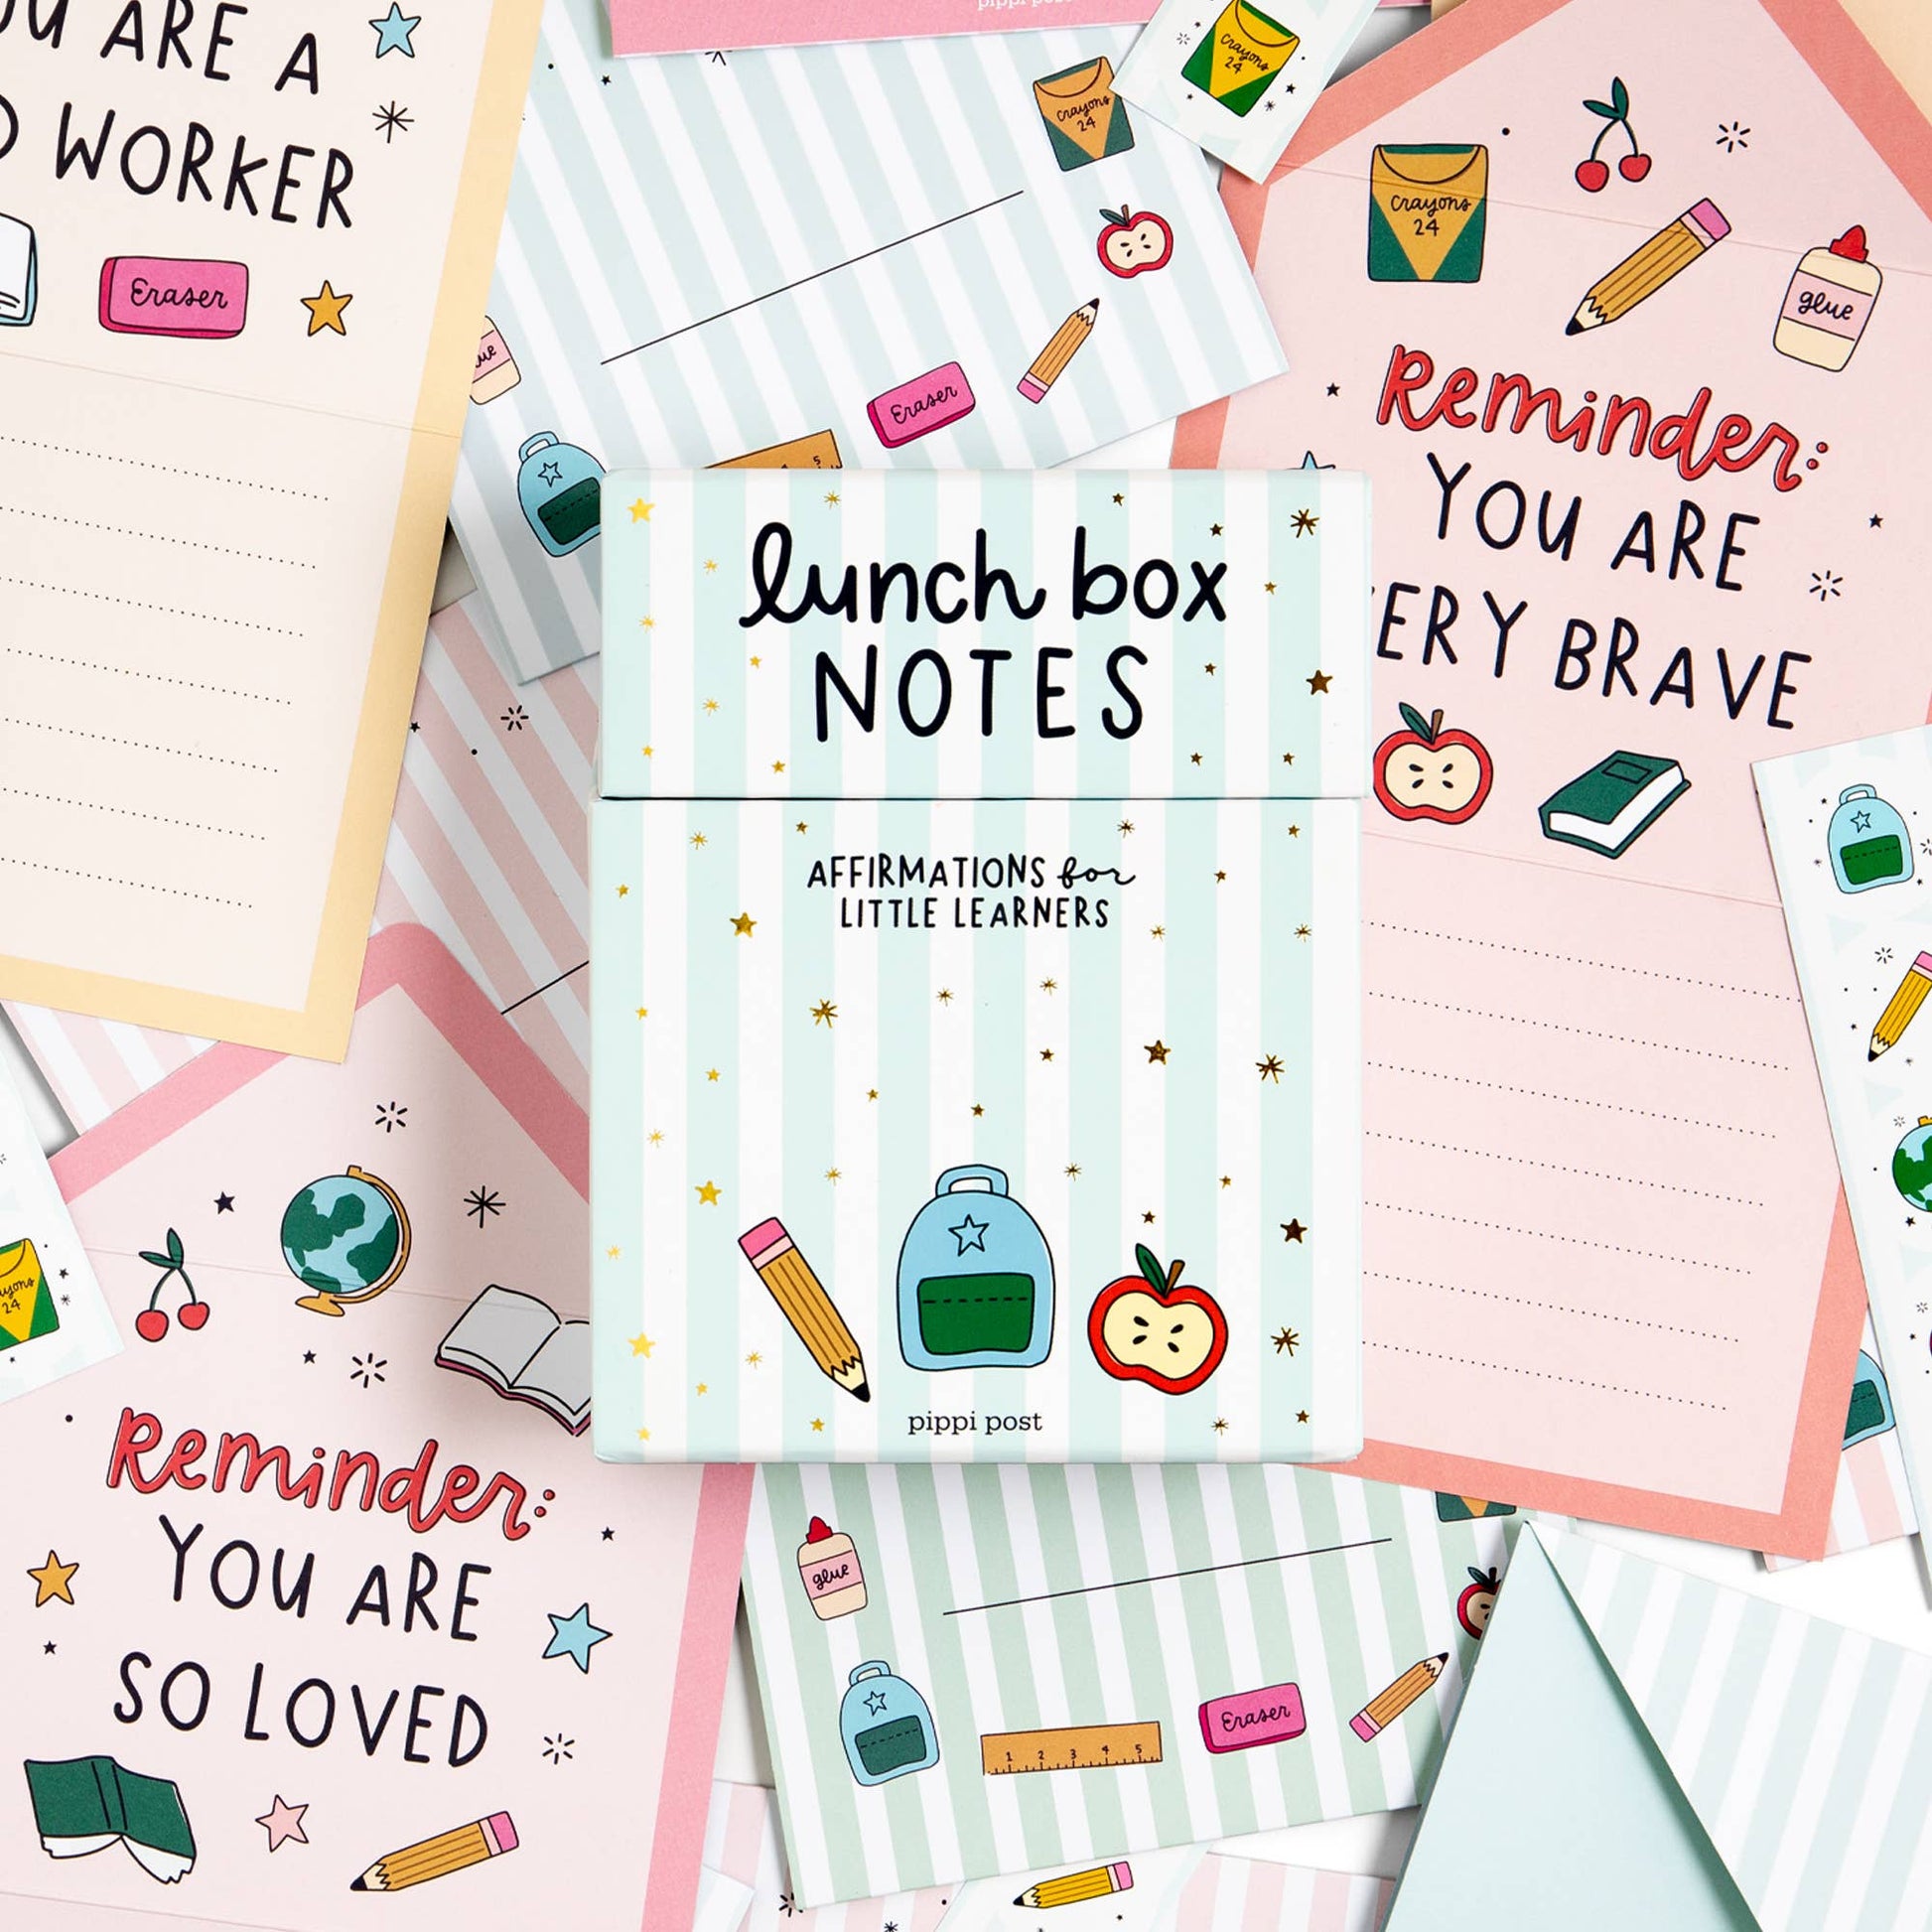 ARE A
WORKER
Eraser
pippi post
Crayons
24
Crayons
24
Eraser
5
Crayons
24
glue
Reminder:
YOU ARE
BRAVE
lunch box
NOTES
AFFIRMATIONS for
LITTLE LEARNERS
pippi post
24
Reminder:
YOU ARE
SO LOVED
glue
1 2 3 4 5
Eraser